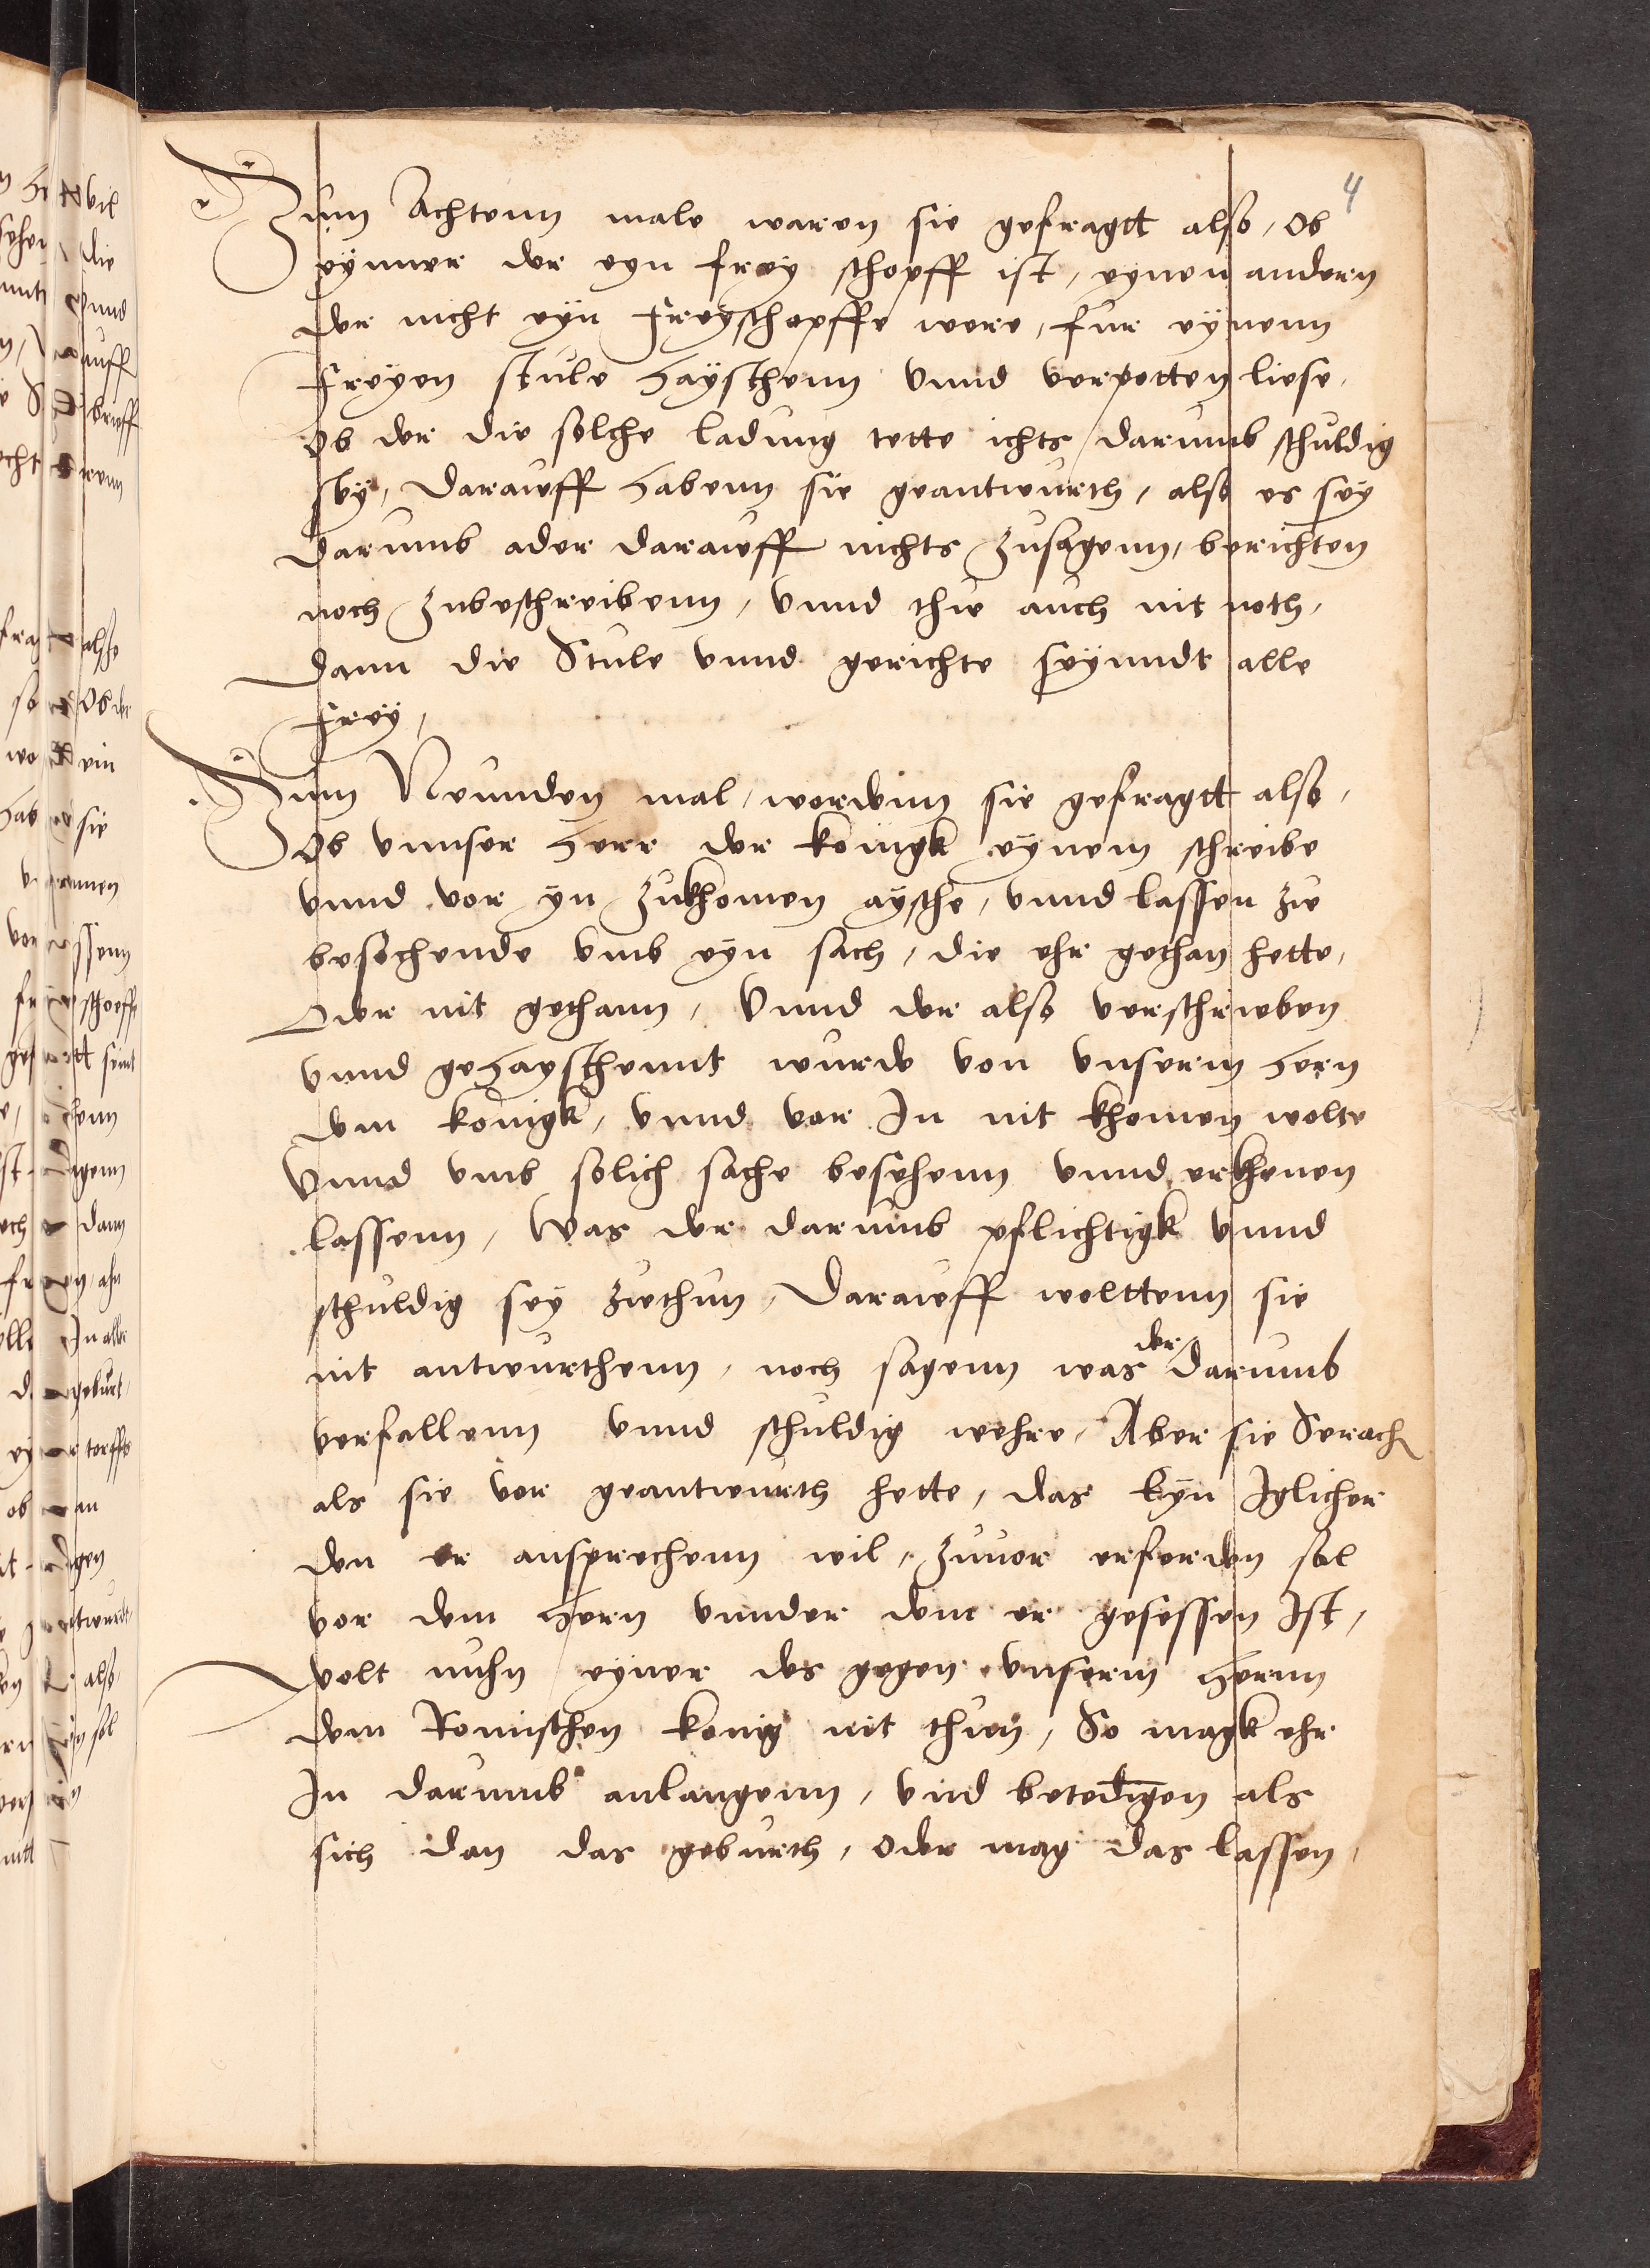 4
Zum Achtenn male waren sie gefragtt also, Ob
eynner der eyn frey schopff ist, eynen andern
der nicht eyn freyschopffe were, fur eynenn
freyen stule hayschenn vnnd verpotten liese,
Ob der die solche ladung tette ichts darumb schuldig
sey, Darauff habenn sie geantwurth, also es sey
darumb ader darauff nichts zusagenn, berichten
noch zubeschreibenn, vnnd thue auch nit noth,
Dann die Stule vnnd gerichte seynndt alle
frey,
Zum Neunden mal, werdenn sie gefragtt also,
Ob vnnser herr der konigk eynem schreibe
vnnd vor yn zukhomen aysche, vnnd lassen zu
besehende vmb eyn sach, die ehr gethan hette,
Oder nit gethann, Vnnd der also verschrieben
vnnd gehayschennt wurde von vnserm hern
dem konigk, vnnd vor In nit khomen wolte
Vnnd vmb solich sache besehenn vnnd erkhenen
lassenn, Was der darumb pflichtigk vnnd
schuldig sey zuthun, Darauff welttenn sie
nit antwurthenn, noch sagenn was der darumb
verfallenn vnnd schuldig wehre, Aber sie Sprach
als sie vor geantwurth hette, das eyn Iglicher
den er ansprechenn wil, zuuor erfordern sol
vor dem hern vnnder dem er gesessen Ist,
wolt nuhn eyner des gegen vnserm hernn
dem Romischen konig nit thun, So magk ehr
In darumb anlangenn, vnd betedigen als
sich dan das geburth, oder mag das lassen,